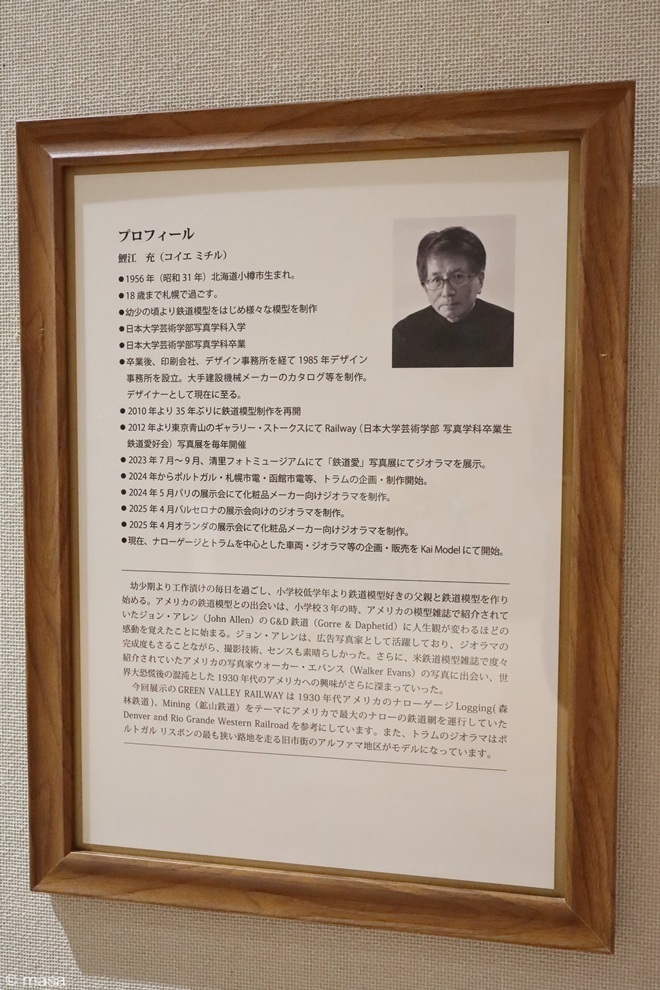 プロフィール
鯉江　充（コイエ ミチル）
●1956年（昭和31年）北海道小樽市生まれ。
●18歳まで札幌で過ごす。
●幼少の頃より鉄道模型をはじめ様々な模型を制作
●日本大学芸術学部写真学科入学
●日本大学芸術学部写真学科卒業
●卒業後、印刷会社、デザイン事務所を経て1985年デザイン
事務所を設立。大手建設機械メーカーのカタログ等を制作。
デザイナーとして現在に至る。
●2010年より35年ぶりに鉄道模型制作を再開
●2012年より東京青山のギャラリー・ストークスにてRailway（日本大学芸術学部 写真学科卒業生
鉄道愛好会）写真展を毎年開催
●2023年7月〜9月、清里フォトミュージアムにて「鉄道愛」写真展にてジオラマを展示。
●2024年からポルトガル・札幌市電・函館市電等、トラムの企画・制作開始。
●2024年5月パリの展示会にて化粧品メーカー向けジオラマを制作。
●2025年4月バルセロナの展示会向けのジオラマを制作。
●2025年4月オランダの展示会にて化粧品メーカー向けジオラマを制作。
●現在、ナローゲージとトラムを中心とした車両・ジオラマ等の企画・販売をKai Modelにて開始。
幼少期より工作漬けの毎日を過ごし、小学校低学年より鉄道模型好きの父親と鉄道模型を作り
始める。アメリカの鉄道模型との出会いは、小学校3年の時、アメリカの模型雑誌で紹介されて
いたジョン・アレン（John Allen）のG&D鉄道（Gorre & Daphetid）に人生観が変わるほどの
感動を覚えたことに始まる。ジョン・アレンは、広告写真家として活躍しており、ジオラマの
完成度もさることながら、撮影技術、センスも素晴らしかった。さらに、米鉄道模型雑誌で度々
紹介されていたアメリカの写真家ウォーカー・エバンス（Walker Evans）の写真に出会い、世
界大恐慌後の混沌とした1930年代のアメリカへの興味がさらに深まっていった。
今回展示のGREEN VALLEY RAILWAYは1930年代アメリカのナローゲージLogging(森
林鉄道)、Mining（鉱山鉄道）をテーマにアメリカで最大のナローの鉄道網を運行していた
Denver and Rio Grande Western Railroadを参考にしています。また、トラムのジオラマはポ
ルトガル リスボンの最も狭い路地を走る旧市街のアルファマ地区がモデルになっています。
© masa